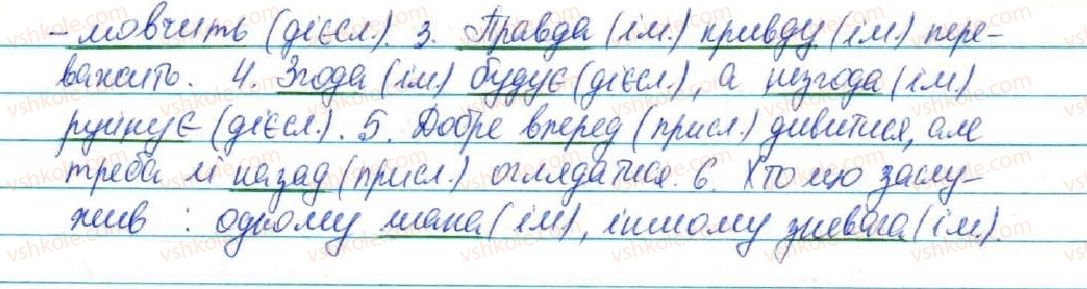 - мовчить (дієсл.). 3. Правда (ім.) кривду (ім.) пере-
важить. 4. Згода (ім.) будує (дієсл.), а незгода (ім.)
руйнує (дієсл.). 5. Добре вперед (присл.) дивитися, але
треба й назад (присл.) оглядатися. 6. Хто що заслу-
жив : одному шана (ім.), іншому зневага (ім.).